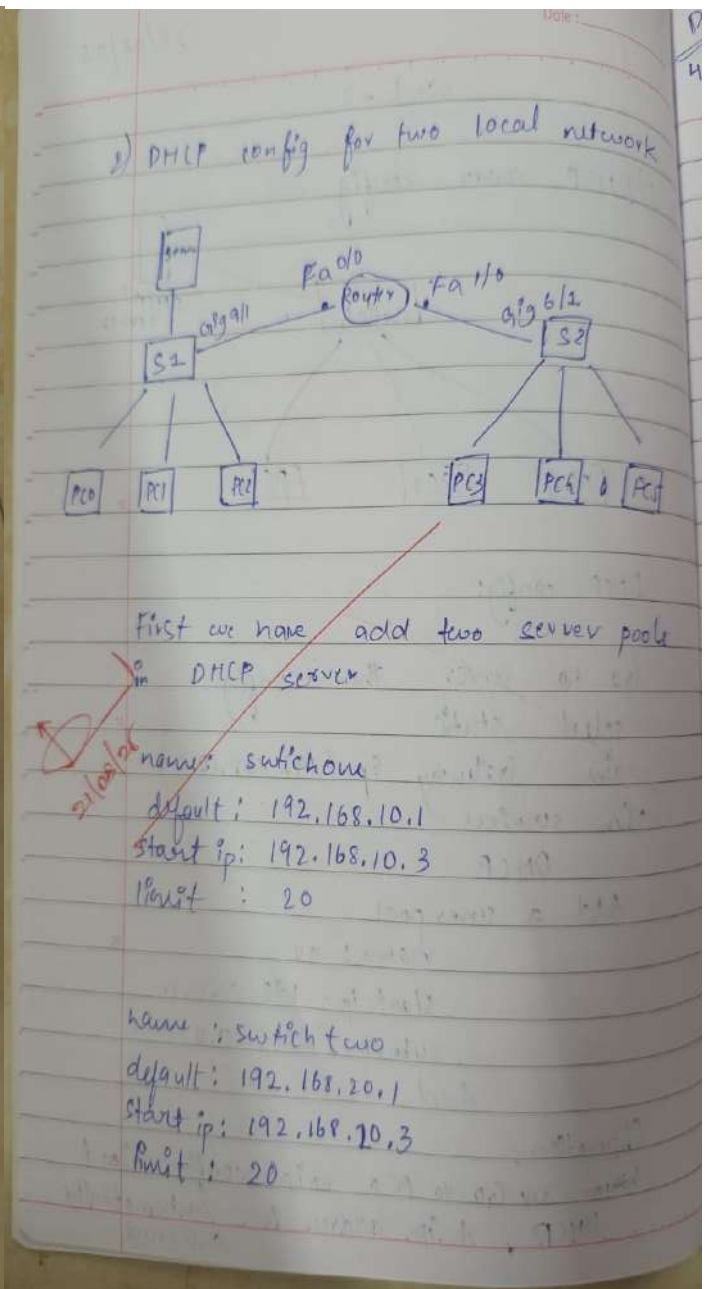 Date:
2) DHCP config for two local network
Fa 0/0
Router
Fa 1/0
Gig 9/1
Gig 6/1
S1
S2
PC0
PC1
PC2
PC3
PC4
PC5
First we have add two server pools
in DHCP server
name: swtichone
default: 192.168.10.1
start ip: 192.168.10.3
limit : 20
name : swtich two
default: 192.168.20.1
start ip: 192.168.20.3
limit : 20